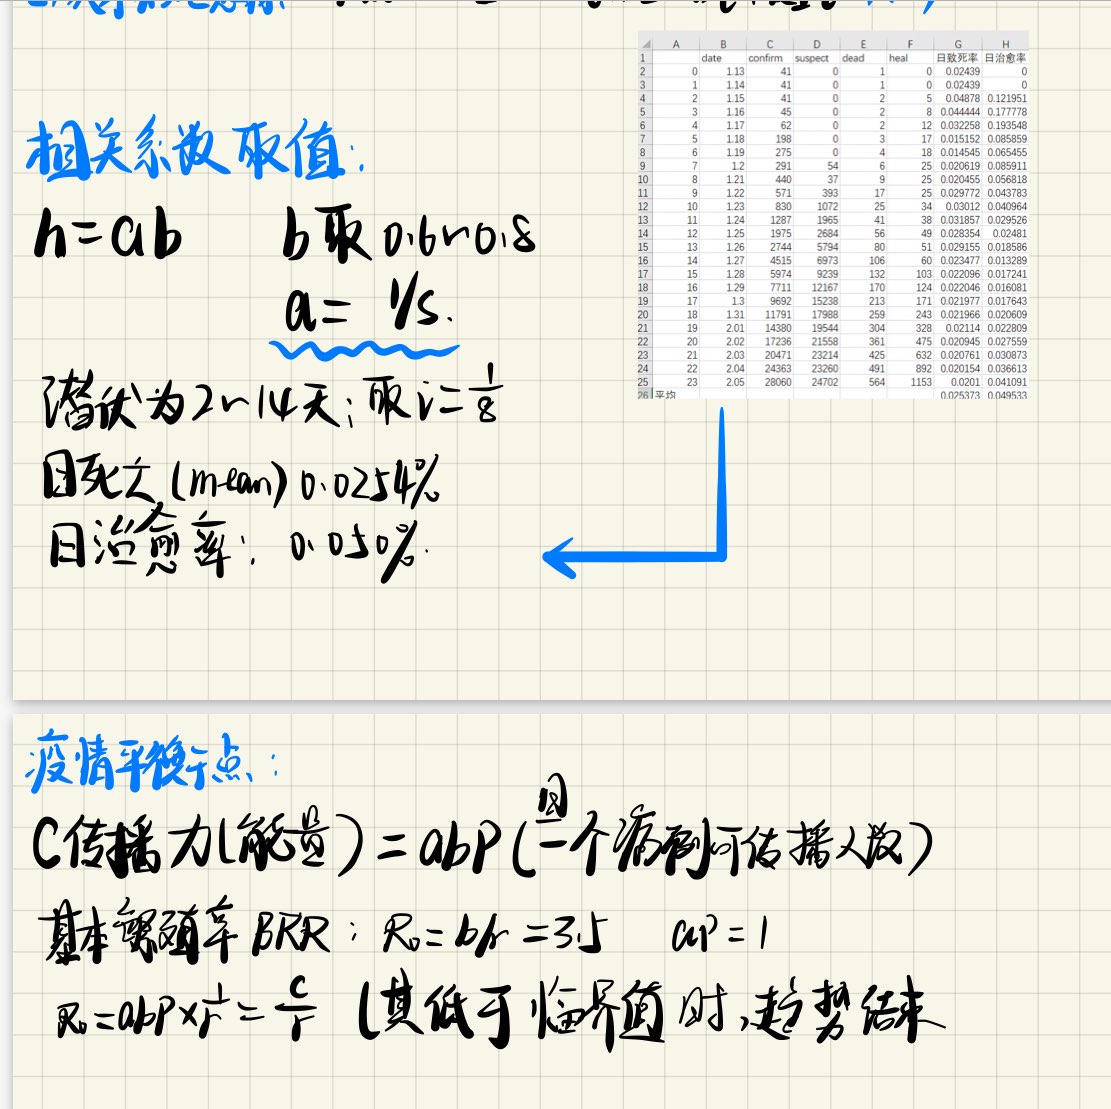 A B C D E F G H
1 date confirm suspect dead heal 日致死率 日治愈率
2 0 1.13 41 0 1 0 0.02439 0
3 1 1.14 41 0 1 0 0.02439 0
4 2 1.15 41 0 2 5 0.04878 0.121951
5 3 1.16 45 0 2 8 0.044444 0.177778
6 4 1.17 62 0 2 12 0.032258 0.193548
7 5 1.18 198 0 3 17 0.015152 0.085859
8 6 1.19 275 0 4 18 0.014545 0.065455
9 7 1.2 291 54 6 25 0.020619 0.085911
10 8 1.21 440 37 9 25 0.020455 0.056818
11 9 1.22 571 393 17 25 0.029772 0.043783
12 10 1.23 830 1072 25 34 0.03012 0.040964
13 11 1.24 1287 1965 41 38 0.031857 0.029526
14 12 1.25 1975 2684 56 49 0.028354 0.02481
15 13 1.26 2744 5794 80 51 0.029155 0.018586
16 14 1.27 4515 6973 106 60 0.023477 0.013289
17 15 1.28 5974 9239 132 103 0.022096 0.017241
18 16 1.29 7711 12167 170 124 0.022046 0.016081
19 17 1.3 9692 15238 213 171 0.021977 0.017643
20 18 1.31 11791 17988 259 243 0.021966 0.020609
21 19 2.01 14380 19544 304 328 0.02114 0.022809
22 20 2.02 17236 21558 361 475 0.020945 0.027559
23 21 2.03 20471 23214 425 632 0.020761 0.030873
24 22 2.04 24363 23260 491 892 0.020154 0.036613
25 23 2.05 28060 24702 564 1153 0.0201 0.041091
26 平均 0.025373 0.049533
相关系数取值:
h=ab b取0.6~0.8
a= 1/s.
潜伏为2~14天;取i=1/8
日死亡(mean)0.0254%
日治愈率: 0.050%.
疫情平衡点:
C传播力(能量)=abP(一个病例可传播人数)
基本繁殖率BRR: R₀=b/r=3.5 aP=1
R₀=abP×1/r=c/r (其低于临界值时,趋势结束